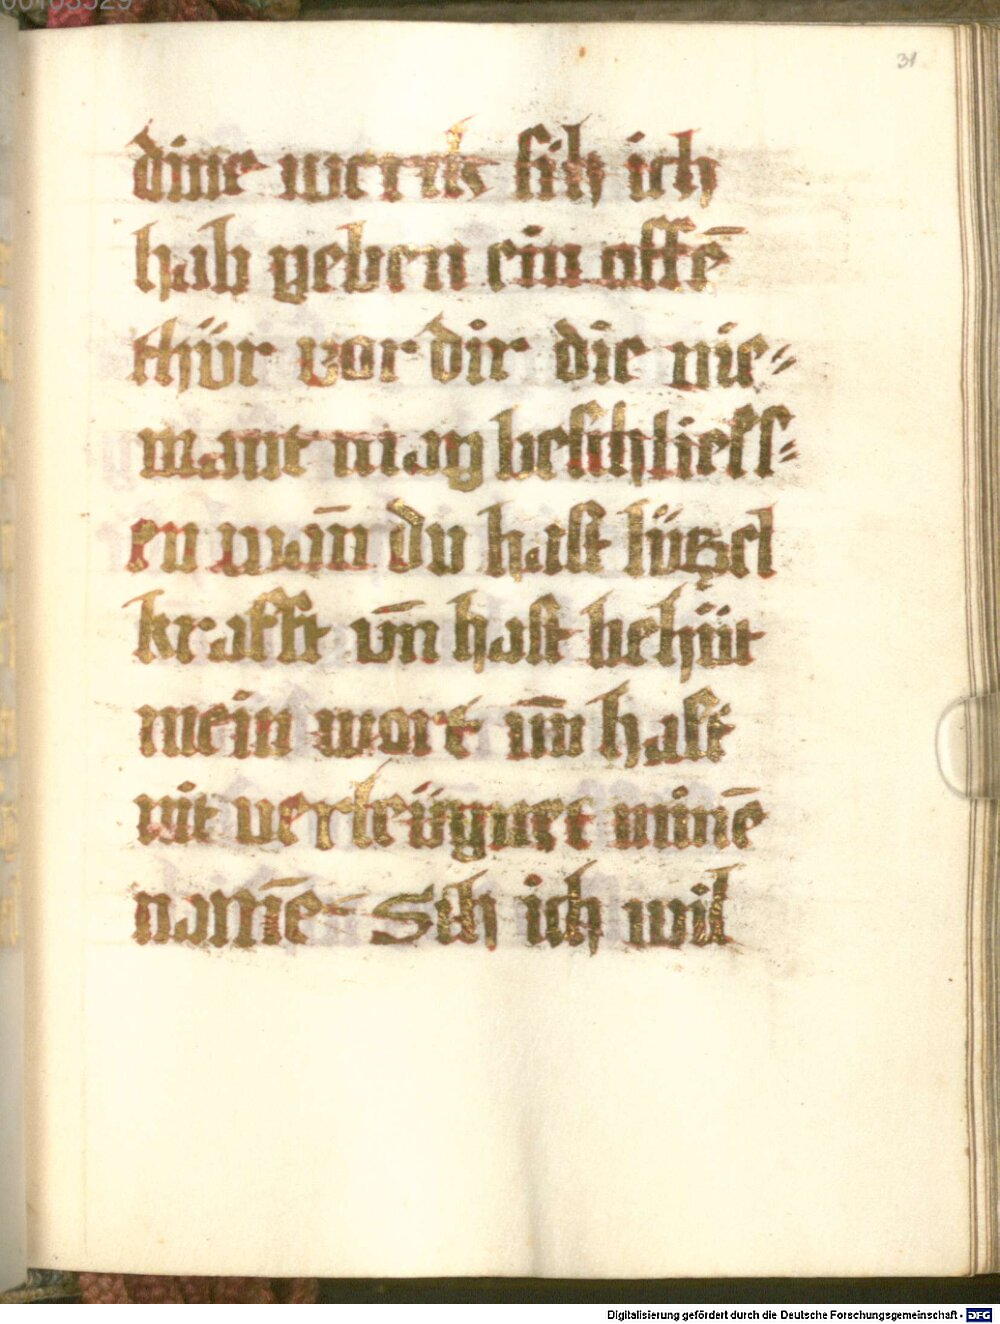 31
dine werck sih ich
hab geben ein offē
thür vor dir die nie⸗
mant mag beschliess⸗
en wān du hast lützel
krafft vn̄ hast behüt
mein wort vn̄ hast
nit verleügnet minē
namē Seh ich wil
Digitalisierung gefördert durch die Deutsche Forschungsgemeinschaft - DFG